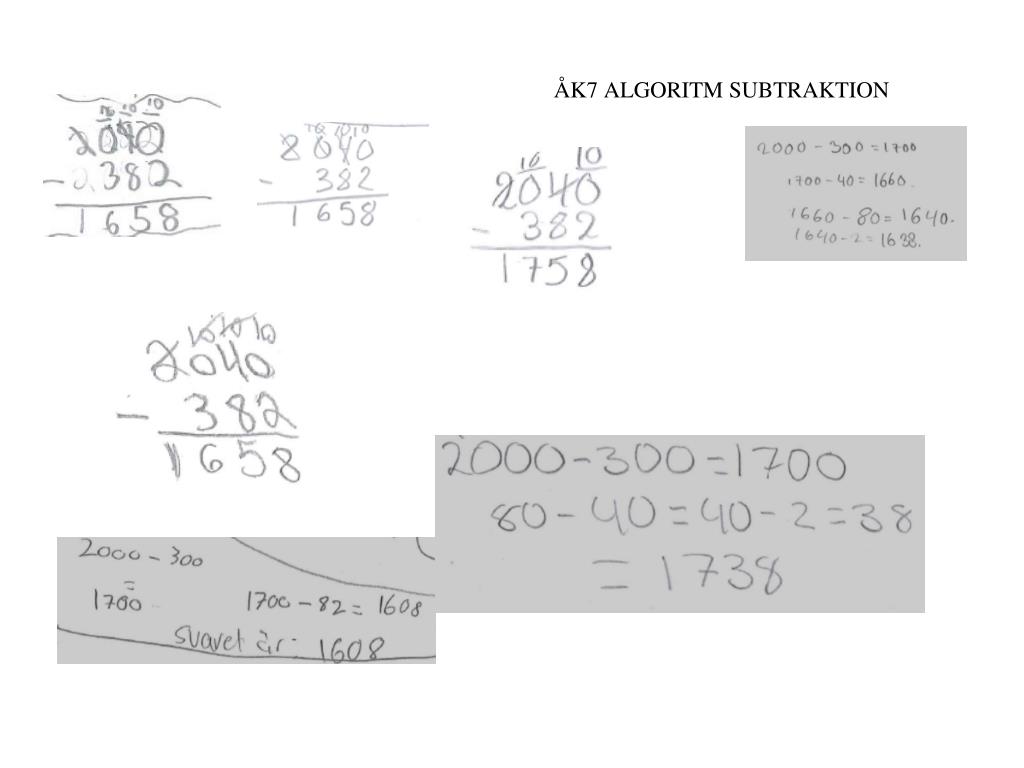 ÅK7 ALGORITM SUBTRAKTION
10 10 10
2040
- 382
1658
10 10 10
2040
- 382
1658
10 10
2040
- 382
1758
2000 - 300 = 1700
1700 - 40 = 1660.
1660 - 80 = 1640.
1640 - 2 = 1638.
10 10 10
2040
- 382
1658
2000 - 300 = 1700
80 - 40 = 40 - 2 = 38
= 1738
2000 - 300
=
1700
1700 - 82 = 1608
svavet är: 1608